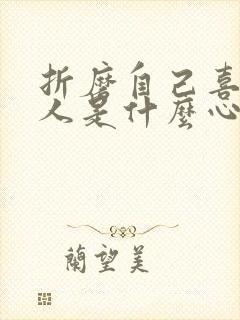 折磨自己喜
人是什麼心
蘭望美